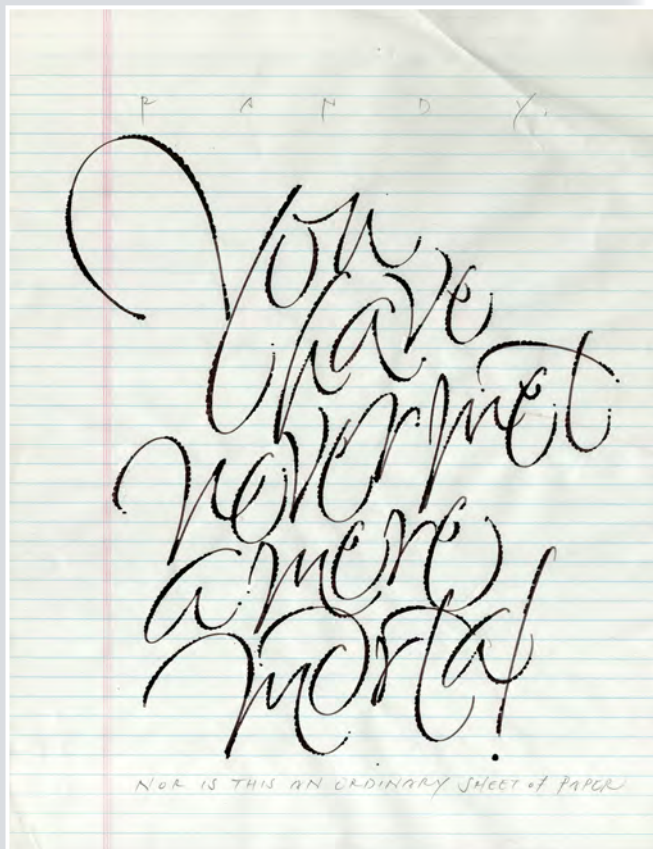 RANDY,
You
have
never met
a mere
mortal!
NOR IS THIS AN ORDINARY SHEET of PAPER